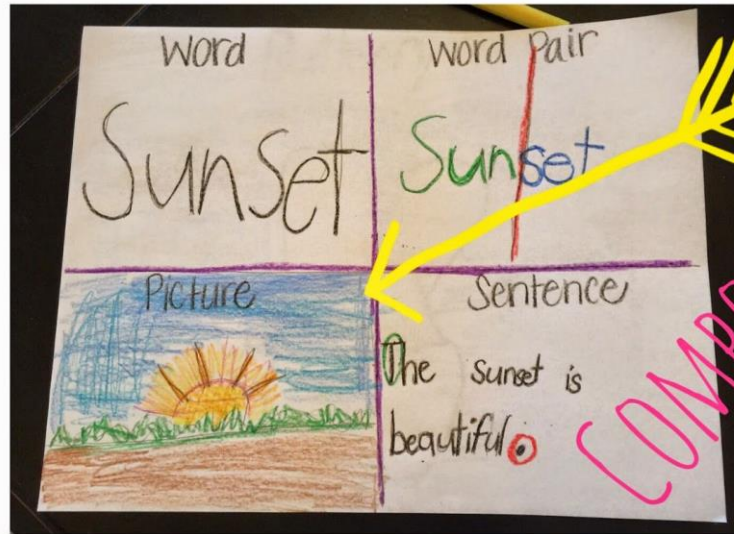 Word
Sunset
Word Pair
Sunset
Picture
Sentence
The sunset is
beautiful.